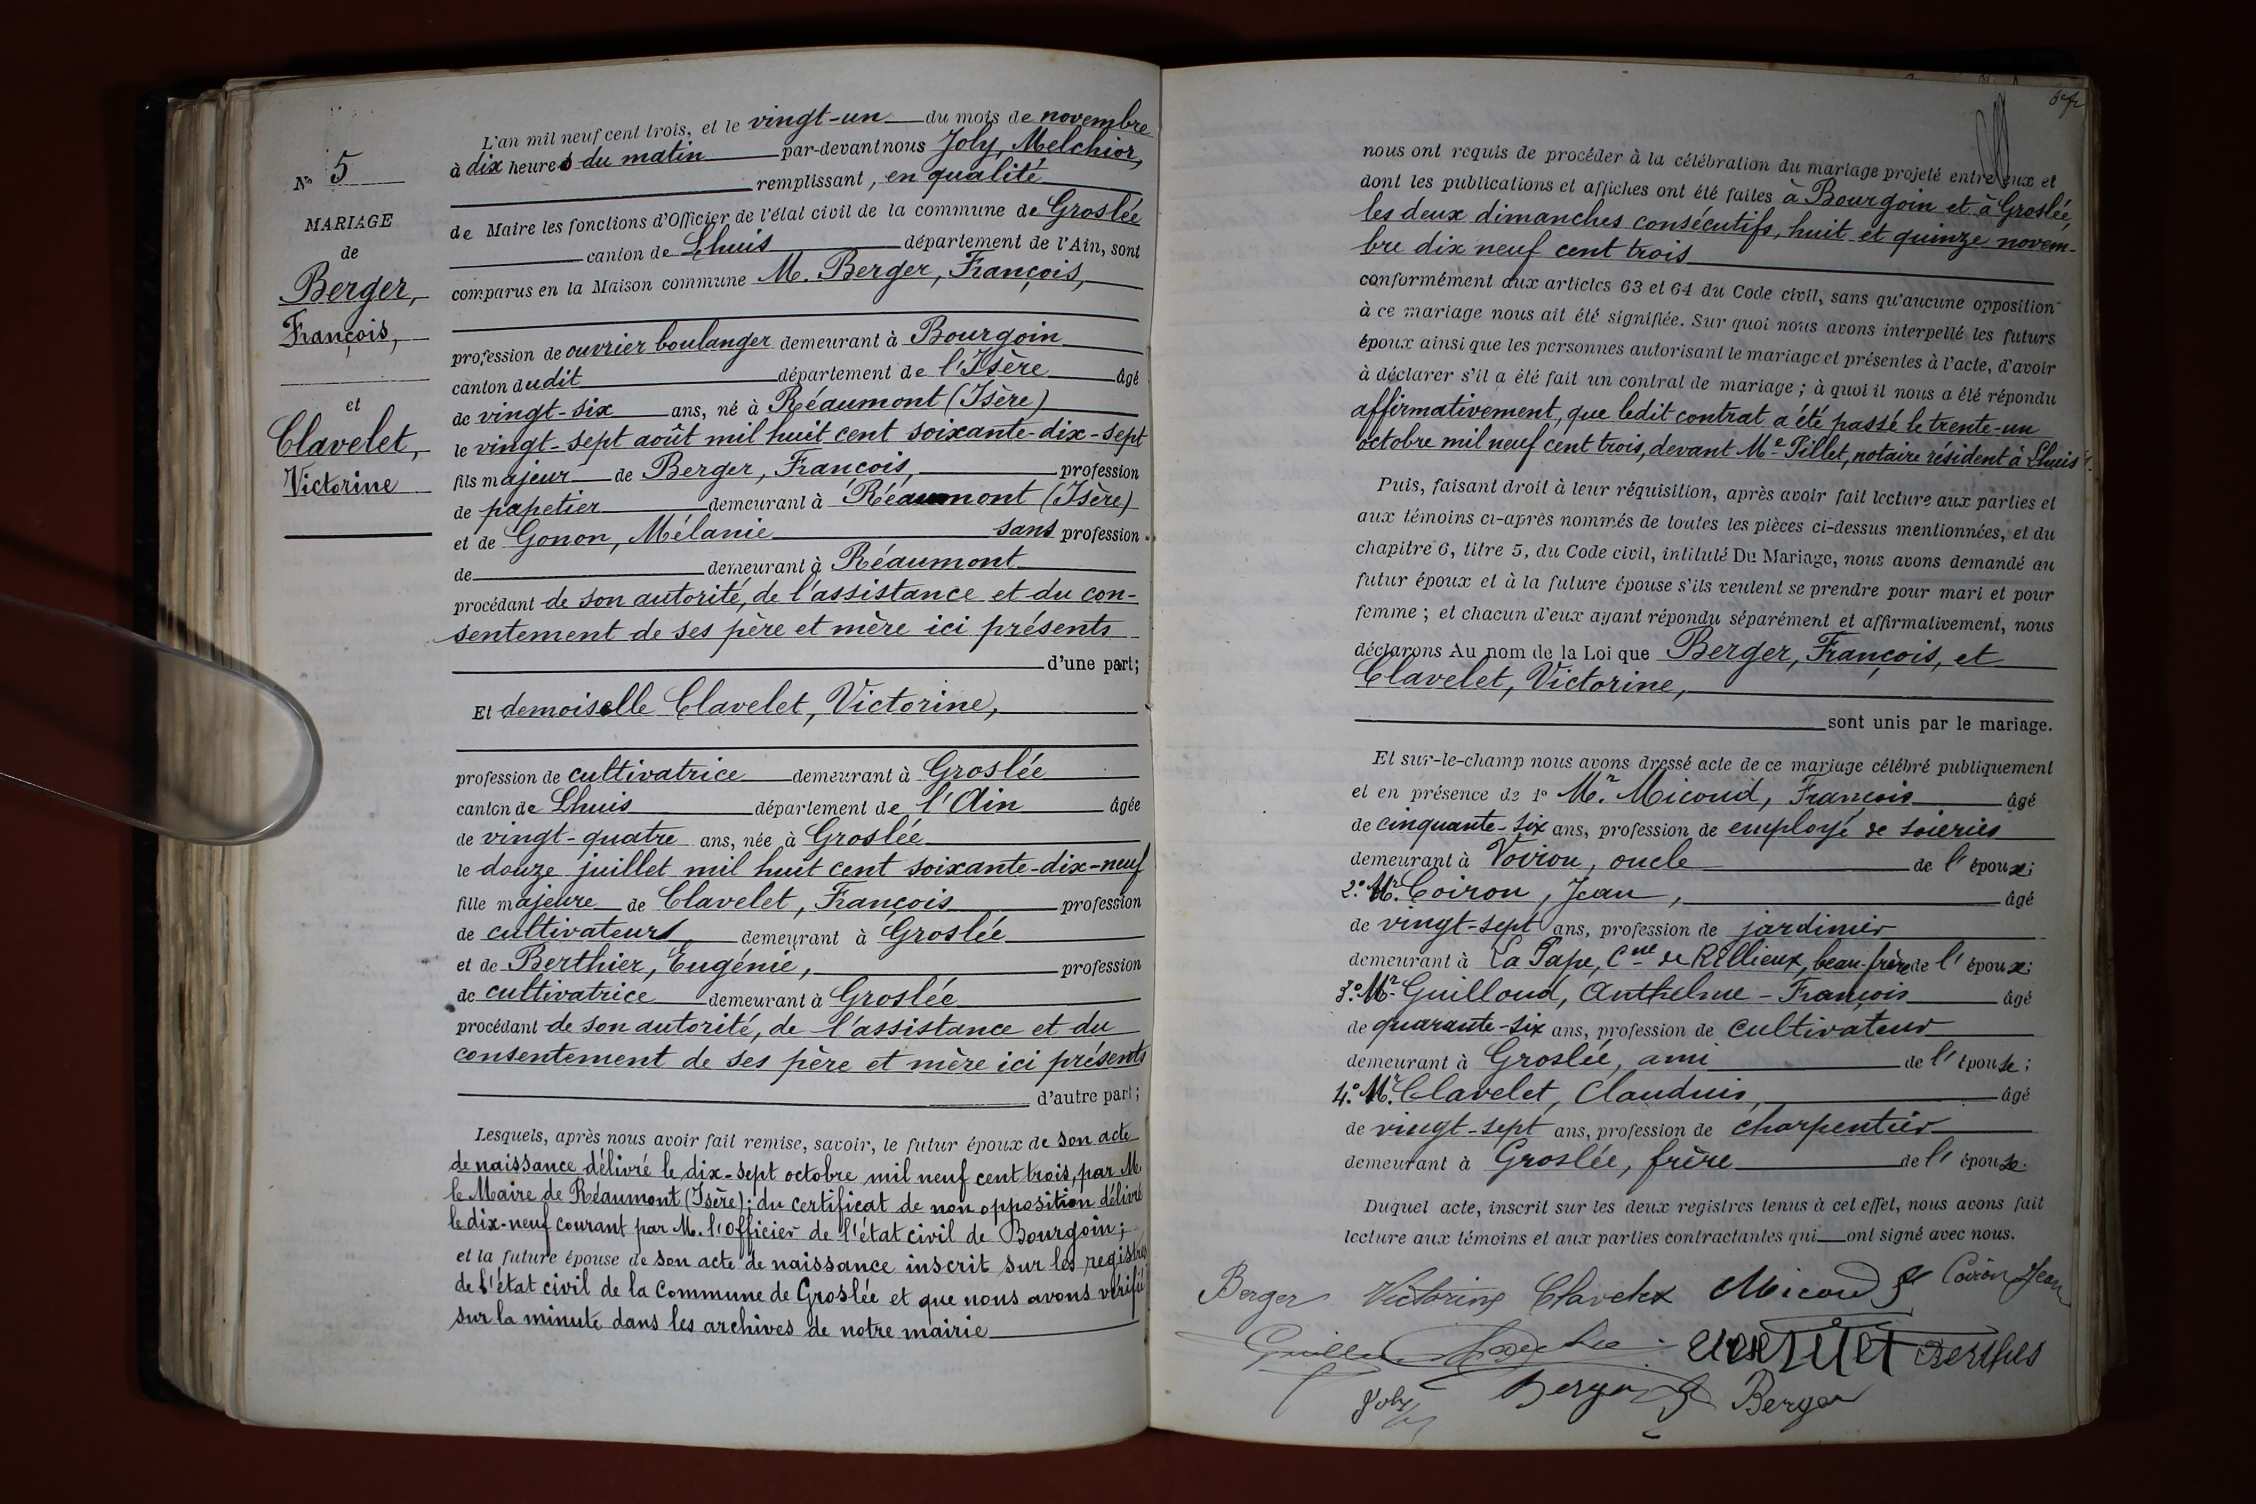 N° 5
MARIAGE
de
Berger,
François,
et
Clavelet,
Victorine
L'an mil neuf cent trois, et le vingt-un du mois de novembre
à dix heures du matin par-devant nous Joly, Melchior,
remplissant, en qualité
de Maire les fonctions d'Officier de l'état civil de la commune de Groslée
canton de Lhuis département de l'Ain, sont
comparus en la Maison commune M. Berger, François,
profession de ouvrier boulanger demeurant à Bourgoin
canton dudit département de l'Isère âgé
de vingt-six ans, né à Réaumont (Isère)
le vingt-sept août mil huit cent soixante-dix-sept
fils majeur de Berger, François, profession
de papetier demeurant à Réaumont (Isère)
et de Gonon, Mélanie sans profession
de demeurant à Réaumont
procédant de son autorité, de l'assistance et du con-
sentement de ses père et mère ici présents
d'une part;
Et demoiselle Clavelet, Victorine,
profession de cultivatrice demeurant à Groslée
canton de Lhuis département de l'Ain âgée
de vingt-quatre ans, née à Groslée
le douze juillet mil huit cent soixante-dix-neuf
fille majeure de Clavelet, François profession
de cultivateur demeurant à Groslée
et de Berthier, Eugénie, profession
de cultivatrice demeurant à Groslée
procédant de son autorité, de l'assistance et du
consentement de ses père et mère ici présents
d'autre part;
Lesquels, après nous avoir fait remise, savoir, le futur époux de son acte
de naissance délivré le dix-sept octobre mil neuf cent trois, par M.
le Maire de Réaumont (Isère); du certificat de non opposition délivré
le dix-neuf courant par M. l'Officier de l'état civil de Bourgoin;
et la future épouse de son acte de naissance inscrit sur les registres
de l'état civil de la Commune de Groslée et que nous avons vérifié
sur la minute dans les archives de notre mairie
nous ont requis de procéder à la célébration du mariage projeté entre eux et
dont les publications et affiches ont été faites à Bourgoin et à Groslée,
les deux dimanches consécutifs, huit et quinze novem-
bre dix neuf cent trois
conformément aux articles 63 et 64 du Code civil, sans qu'aucune opposition
à ce mariage nous ait été signifiée. Sur quoi nous avons interpellé les futurs
époux ainsi que les personnes autorisant le mariage et présentes à l'acte, d'avoir
à déclarer s'il a été fait un contrat de mariage; à quoi il nous a été répondu
affirmativement, que ledit contrat a été passé le trente-un
octobre mil neuf cent trois, devant Me Pillet, notaire résident à Lhuis
Puis, faisant droit à leur réquisition, après avoir fait lecture aux parties et
aux témoins ci-après nommés de toutes les pièces ci-dessus mentionnées, et du
chapitre 6, titre 5, du Code civil, intitulé Du Mariage, nous avons demandé au
futur époux et à la future épouse s'ils veulent se prendre pour mari et pour
femme; et chacun d'eux ayant répondu séparément et affirmativement, nous
déclarons Au nom de la Loi que Berger, François, et
Clavelet, Victorine,
sont unis par le mariage.
Et sur-le-champ nous avons dressé acte de ce mariage célébré publiquement
et en présence de 1° Mr. Micoud, François âgé
de cinquante-six ans, profession de employé de soieries
demeurant à Voiron, oncle de l'époux;
2° Mr. Coiron, Jean, âgé
de vingt-sept ans, profession de jardinier
demeurant à La Pape, Cne de Rillieux, beau-frère de l'époux;
3° Mr. Guilloud, Anthelme-François âgé
de quarante-six ans, profession de cultivateur
demeurant à Groslée, ami de l'épouse;
4° Mr. Clavelet, Claudius, âgé
de vingt-sept ans, profession de charpentier
demeurant à Groslée, frère de l'épouse.
Duquel acte, inscrit sur les deux registres tenus à cet effet, nous avons fait
lecture aux témoins et aux parties contractantes qui ont signé avec nous.
Berger Victorine Clavelet Micoud Coiron Jean
Joly Berger Berger